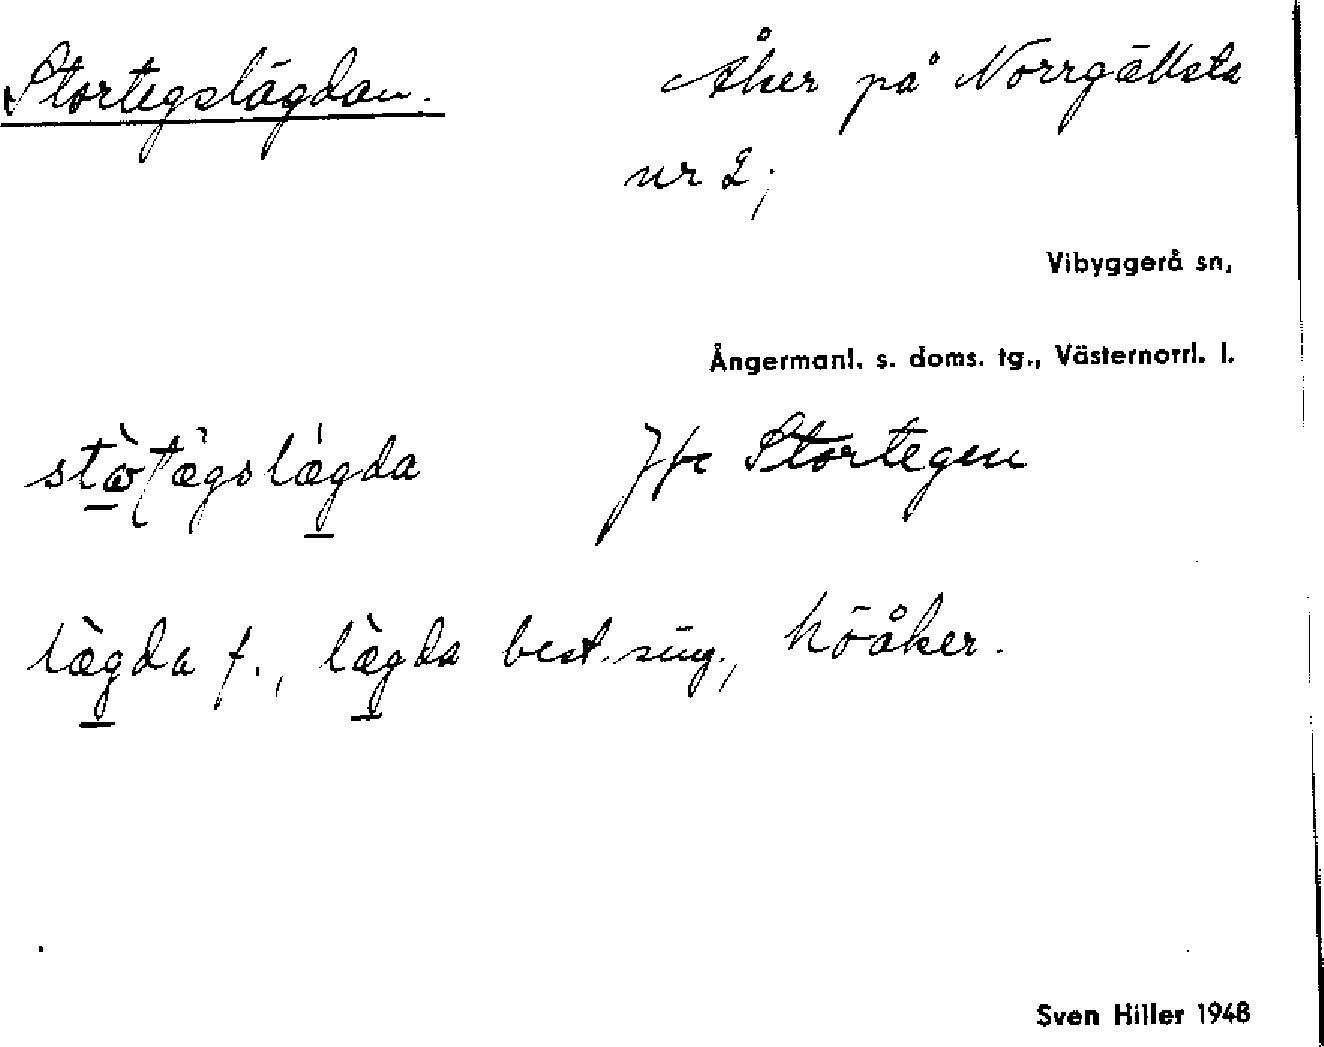 Stortegslägdan. Åker på Norrgällsta
nr 2;
Vibyggerå sn,
Ångermanl. s. doms. tg., Västernorrl. l.
Jfr Stortegen
lægda f., lægda best. sing., höåker.
Sven Hiller 1948